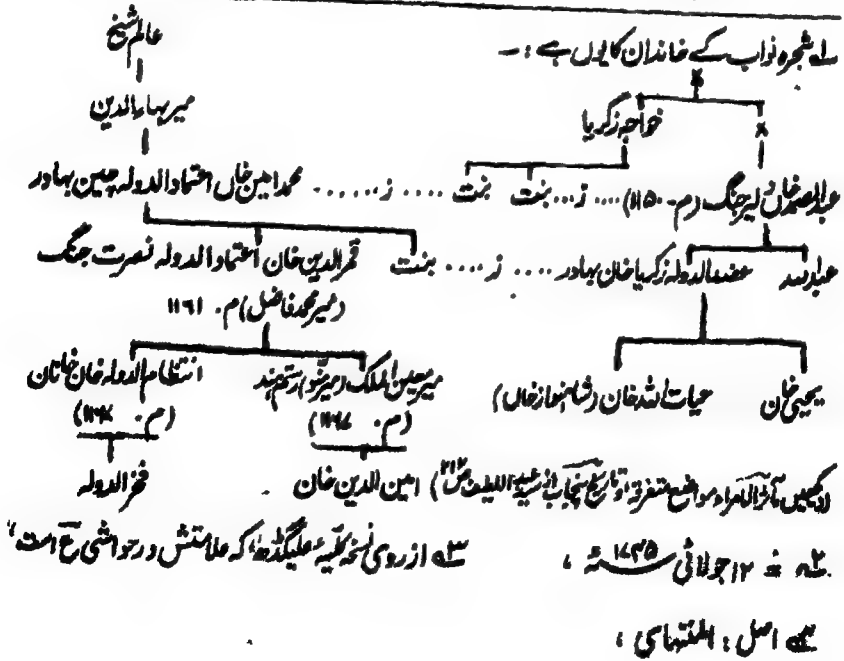 عالم شیخ
لے شجرہ نواب کے خاندان کا یوں ہے : ـ
میر بہاء الدین
خواجہ زکریا
عبدالصمد خان دلیر جنگ (م - ۱۱۵۰) .... ز ... بنت بنت .... ز ...... محمد امین خان اعتماد الدولہ چین بہادر
عبداللہ عضد الدولہ زکریا خان بہادر .... ز .... بنت قمر الدین خان اعتماد الدولہ نصرت جنگ
(میر محمد فاضل) م. ۱۱۶۱
یحیی خان حیات اللہ خان (شاہنواز خاں) میر معین الملک (میر منّو) رستم ہند انتظام الدولہ خان خانان
(م. ۱۱۶۷) (م.
امین الدین خان فخر الدولہ
(دیکھیں مآثر الامراء و مواضع متفرقہ و تاریخ پنجاب از سید عبد اللطیف ص ۲۱۳)
۲ھ = ۱۲ جولائی ۱۷۴۵ء ،
۳ھ از روی نسخہ کلیہ علیگڈھ، کہ علامتش در حواشی ع است ،
۴ھ اصل : المنتہاسی ،